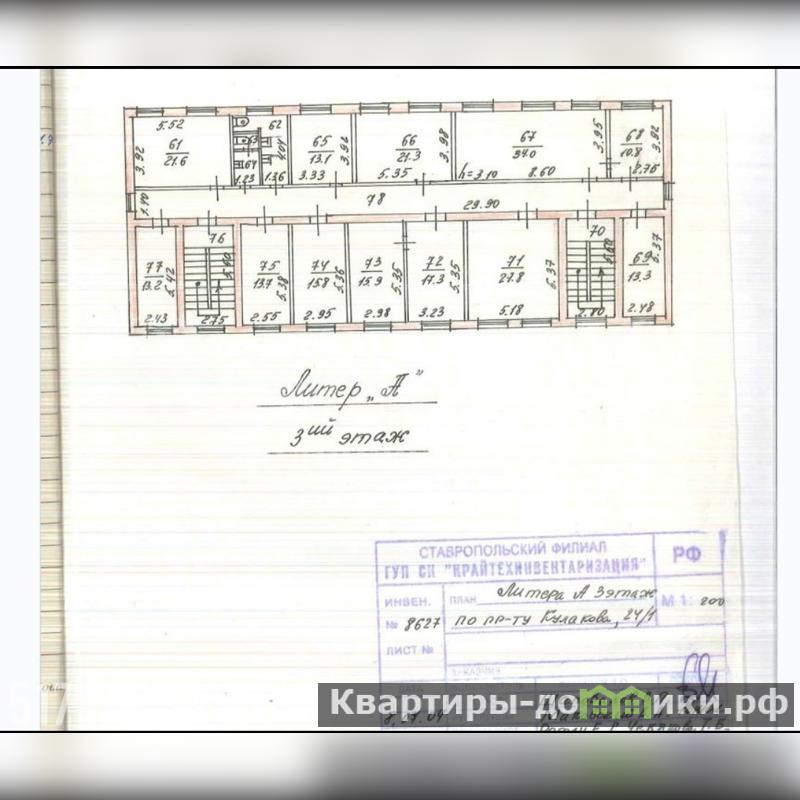 5.52
61
21.6
3.92
62
63
64
1.23
1.36
65
13.1
3.92
3.33
66
21.3
3.98
5.35
67
34.0
3.95
h=3.10
8.60
68
10.8
3.92
2.76
78
29.90
77
13.2
5.42
2.43
76
2.75
75
13.7
5.38
2.55
74
15.8
5.36
2.95
73
15.9
5.35
2.98
72
17.3
5.35
3.23
71
27.8
5.37
5.18
70
2.80
69
13.3
5.37
2.48
Литер „А"
3ий этаж
СТАВРОПОЛЬСКИЙ ФИЛИАЛ
ГУП СК "КРАЙТЕХИНВЕНТАРИЗАЦИЯ"
РФ
ИНВЕН.
№ 8627
ПЛАН Литера А 3 этаж
по пр-ту Кулакова, 24/1
М 1: 200
ЛИСТ №
ЗАКАЗЧИК
Квартиры-домики.рф